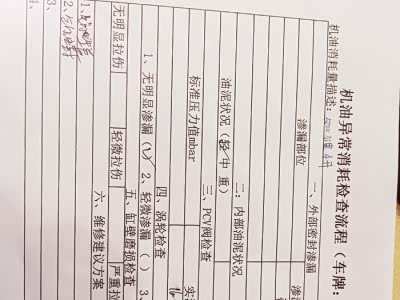 机油异常消耗检查流程（车牌：
机油消耗量描述：5000公里4升
一、外部密封渗漏
渗漏部位 渗
二：内部油泥状况
油泥状况（轻/中 重）
三、PCV阀检查
标准压力值mbar 实
四、涡轮检查
1、无明显渗漏（√）2、轻微渗漏（ ）3、
五、缸壁磨损检查
无明显拉伤 轻微拉伤 严重拉
六、维修建议方案
1、
2、
3、
4、